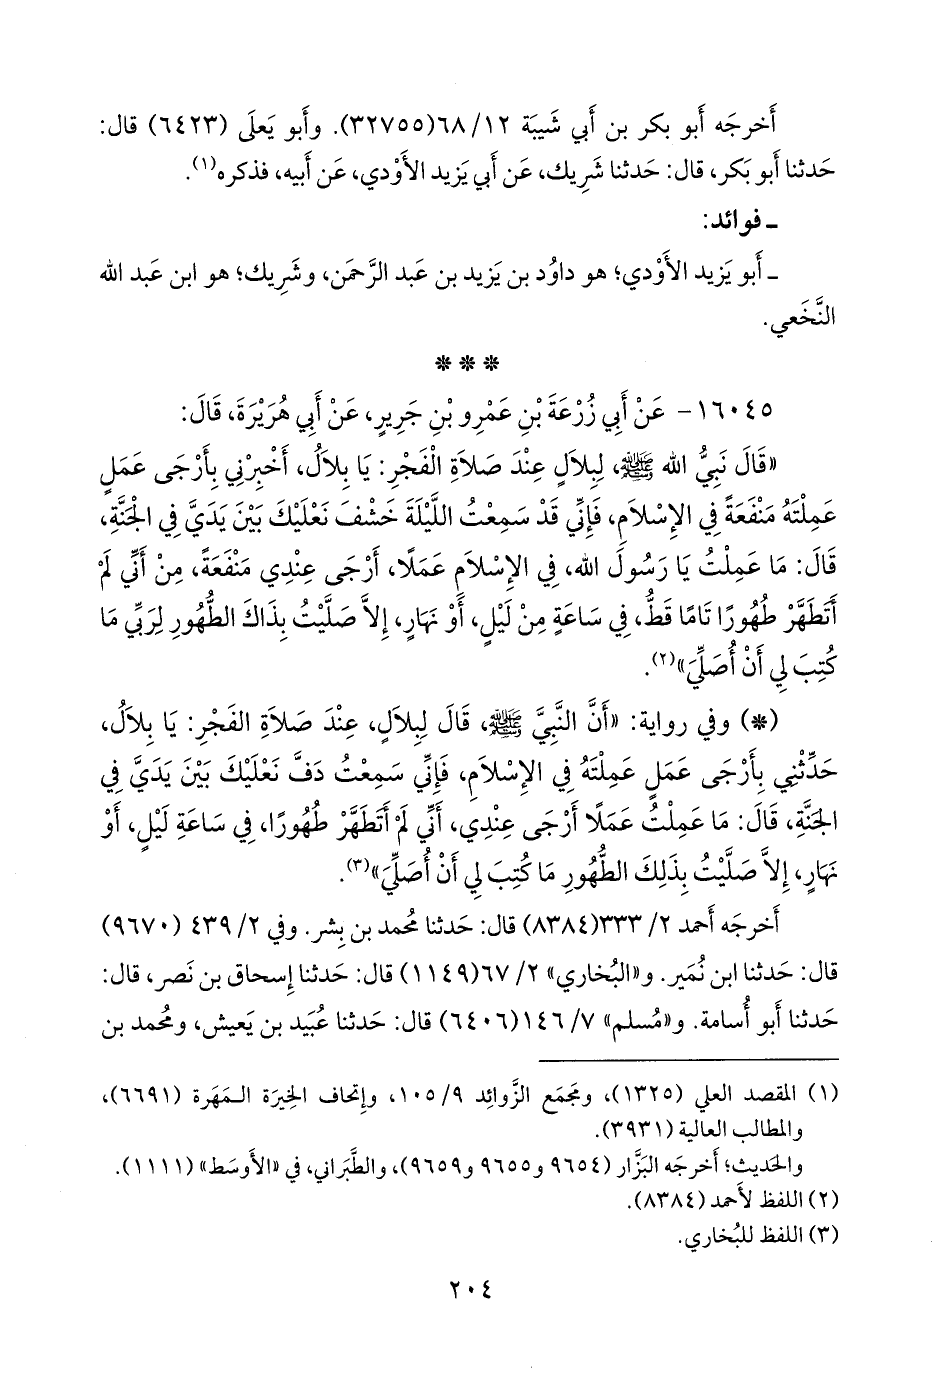 أَخرجَه أَبو بكر بن أَبي شَيبَة ١٢/ ٦٨(٣٢٧٥٥). وأَبو يَعلَى (٦٤٢٣) قال:
حَدثنا أَبو بَكر، قال: حَدثنا شَرِيك، عَن أَبي يَزيد الأَوْدي، عَن أَبيه، فذكره(١).
ـ فوائد:
ـ أَبو يَزيد الأَوْدي؛ هو داوُد بن يَزيد بن عَبد الرَّحمَن، وشَرِيك؛ هو ابن عَبد الله
النَّخَعي.
* * *
١٦٠٤٥- عَنْ أَبِي زُرْعَةَ بْنِ عَمْرِو بْنِ جَرِيرٍ، عَنْ أَبِي هُرَيْرَةَ، قَالَ:
«قَالَ نَبِيُّ الله ﷺ، لِبِلَالٍ عِنْدَ صَلَاةِ الْفَجْرِ: يَا بِلَالُ، أَخْبِرْنِي بِأَرْجَى عَمَلٍ
عَمِلْتَهُ مَنْفَعَةً فِي الإِسْلَامِ، فَإِنِّي قَدْ سَمِعْتُ اللَّيْلَةَ خَشْفَ نَعْلَيْكَ بَيْنَ يَدَيَّ فِي الجَنَّةِ،
قَالَ: مَا عَمِلْتُ يَا رَسُولَ الله، فِي الإِسْلَامِ عَمَلًا، أَرْجَى عِنْدِي مَنْفَعَةً، مِنْ أَنِّي لَمْ
أَتَطَهَّرْ طُهُورًا تَامًّا قَطُّ، فِي سَاعَةٍ مِنْ لَيْلٍ، أَوْ نَهَارٍ، إِلاَّ صَلَّيْتُ بِذَاكَ الطُّهُورِ لِرَبِّي مَا
كُتِبَ لِي أَنْ أُصَلِّيَ»(٢).
(*) وفي رواية: «أَنَّ النَّبِيَّ ﷺ، قَالَ لِبِلَالٍ، عِنْدَ صَلَاةِ الفَجْرِ: يَا بِلَالُ،
حَدِّثْنِي بِأَرْجَى عَمَلٍ عَمِلْتَهُ فِي الإِسْلَامِ، فَإِنِّي سَمِعْتُ دَفَّ نَعْلَيْكَ بَيْنَ يَدَيَّ فِي
الجَنَّةِ، قَالَ: مَا عَمِلْتُ عَمَلًا أَرْجَى عِنْدِي، أَنِّي لَمْ أَتَطَهَّرْ طُهُورًا، فِي سَاعَةِ لَيْلٍ، أَوْ
نَهَارٍ، إِلاَّ صَلَّيْتُ بِذَلِكَ الطُّهُورِ مَا كُتِبَ لِي أَنْ أُصَلِّيَ»(٣).
أَخرجَه أَحمد ٢/ ٣٣٣(٨٣٨٤) قال: حَدثنا مُحمد بن بِشر. وفي ٢/ ٤٣٩ (٩٦٧٠)
قال: حَدثنا ابن نُمَير. و«البُخاري» ٢/ ٦٧(١١٤٩) قال: حَدثنا إِسحاق بن نَصر، قال:
حَدثنا أَبو أُسامة. و«مُسلم» ٧/ ١٤٦(٦٤٠٦) قال: حَدثنا عُبَيد بن يَعيش، ومُحمد بن
(١) المقصد العلي (١٣٢٥)، ومَجمَع الزَّوائِد ٩/ ١٠٥، وإِتحاف الخِيرَة الـمَهَرة (٦٦٩١)،
والمطالب العالية (٣٩٣١).
والحَديث؛ أَخرجَه البَزَّار (٩٦٥٤ و٩٦٥٥ و٩٦٥٩)، والطَّبَراني، في «الأَوسَط» (١١١١).
(٢) اللفظ لأَحمد (٨٣٨٤).
(٣) اللفظ للبُخاري.
٢٠٤